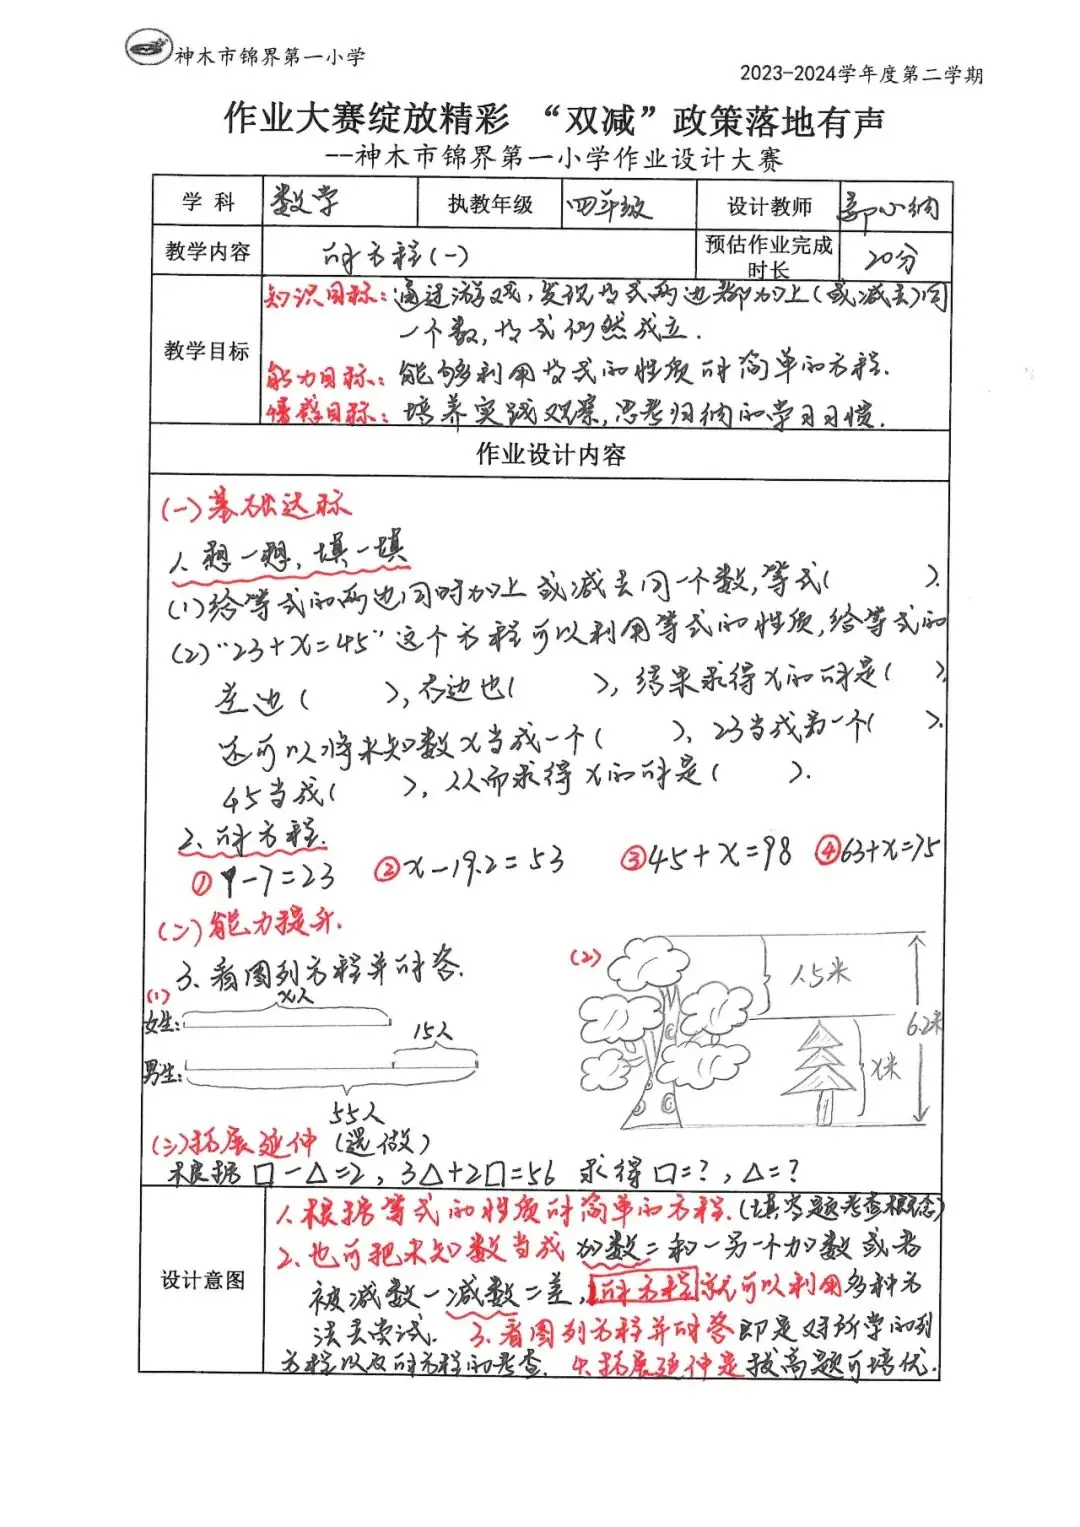 神木市锦界第一小学
2023-2024学年度第二学期
作业大赛绽放精彩 “双减”政策落地有声
--神木市锦界第一小学作业设计大赛
学 科 数学 执教年级 四年级 设计教师 郭小纳
教学内容 解方程(一) 预估作业完成时长 20分
教学目标
知识目标:通过游戏,发现等式两边都加上(或减去)同
一个数,等式仍然成立.
能力目标:能够利用等式的性质解简单的方程.
情感目标:培养实践观察,思考归纳的学习习惯.
作业设计内容
(一)基础达标
1.想一想,填一填
(1)给等式的两边同时加上或减去同一个数,等式( ).
(2)“23+x=45”这个方程可以利用等式的性质,给等式的
左边( ),右边也( ),结果求得x的解是( ),
还可以将未知数x当成一个( ),23当成另一个( ),
45当成( ),从而求得x的解是( ).
2、解方程.
①y-7=23 ②x-19.2=53 ③45+x=98 ④63+x=75
(二)能力提升.
3、看图列方程并解答.
(1)
x人
女生:
15人
男生:
55人
(2)
1.5米
6.2米
x米
(三)拓展延伸(选做)
根据□-△=2,3△+2□=56 求得□=?,△=?
设计意图
1.根据等式的性质解简单的方程.(填空题考查概念)
2、也可把未知数当成加数=和-另一个加数或者
被减数-减数=差,解方程就可以利用多种方
法去尝试. 3.看图列方程并解答即是对所学的列
方程以及解方程的考查. 4.拓展延伸是拔高题可培优.